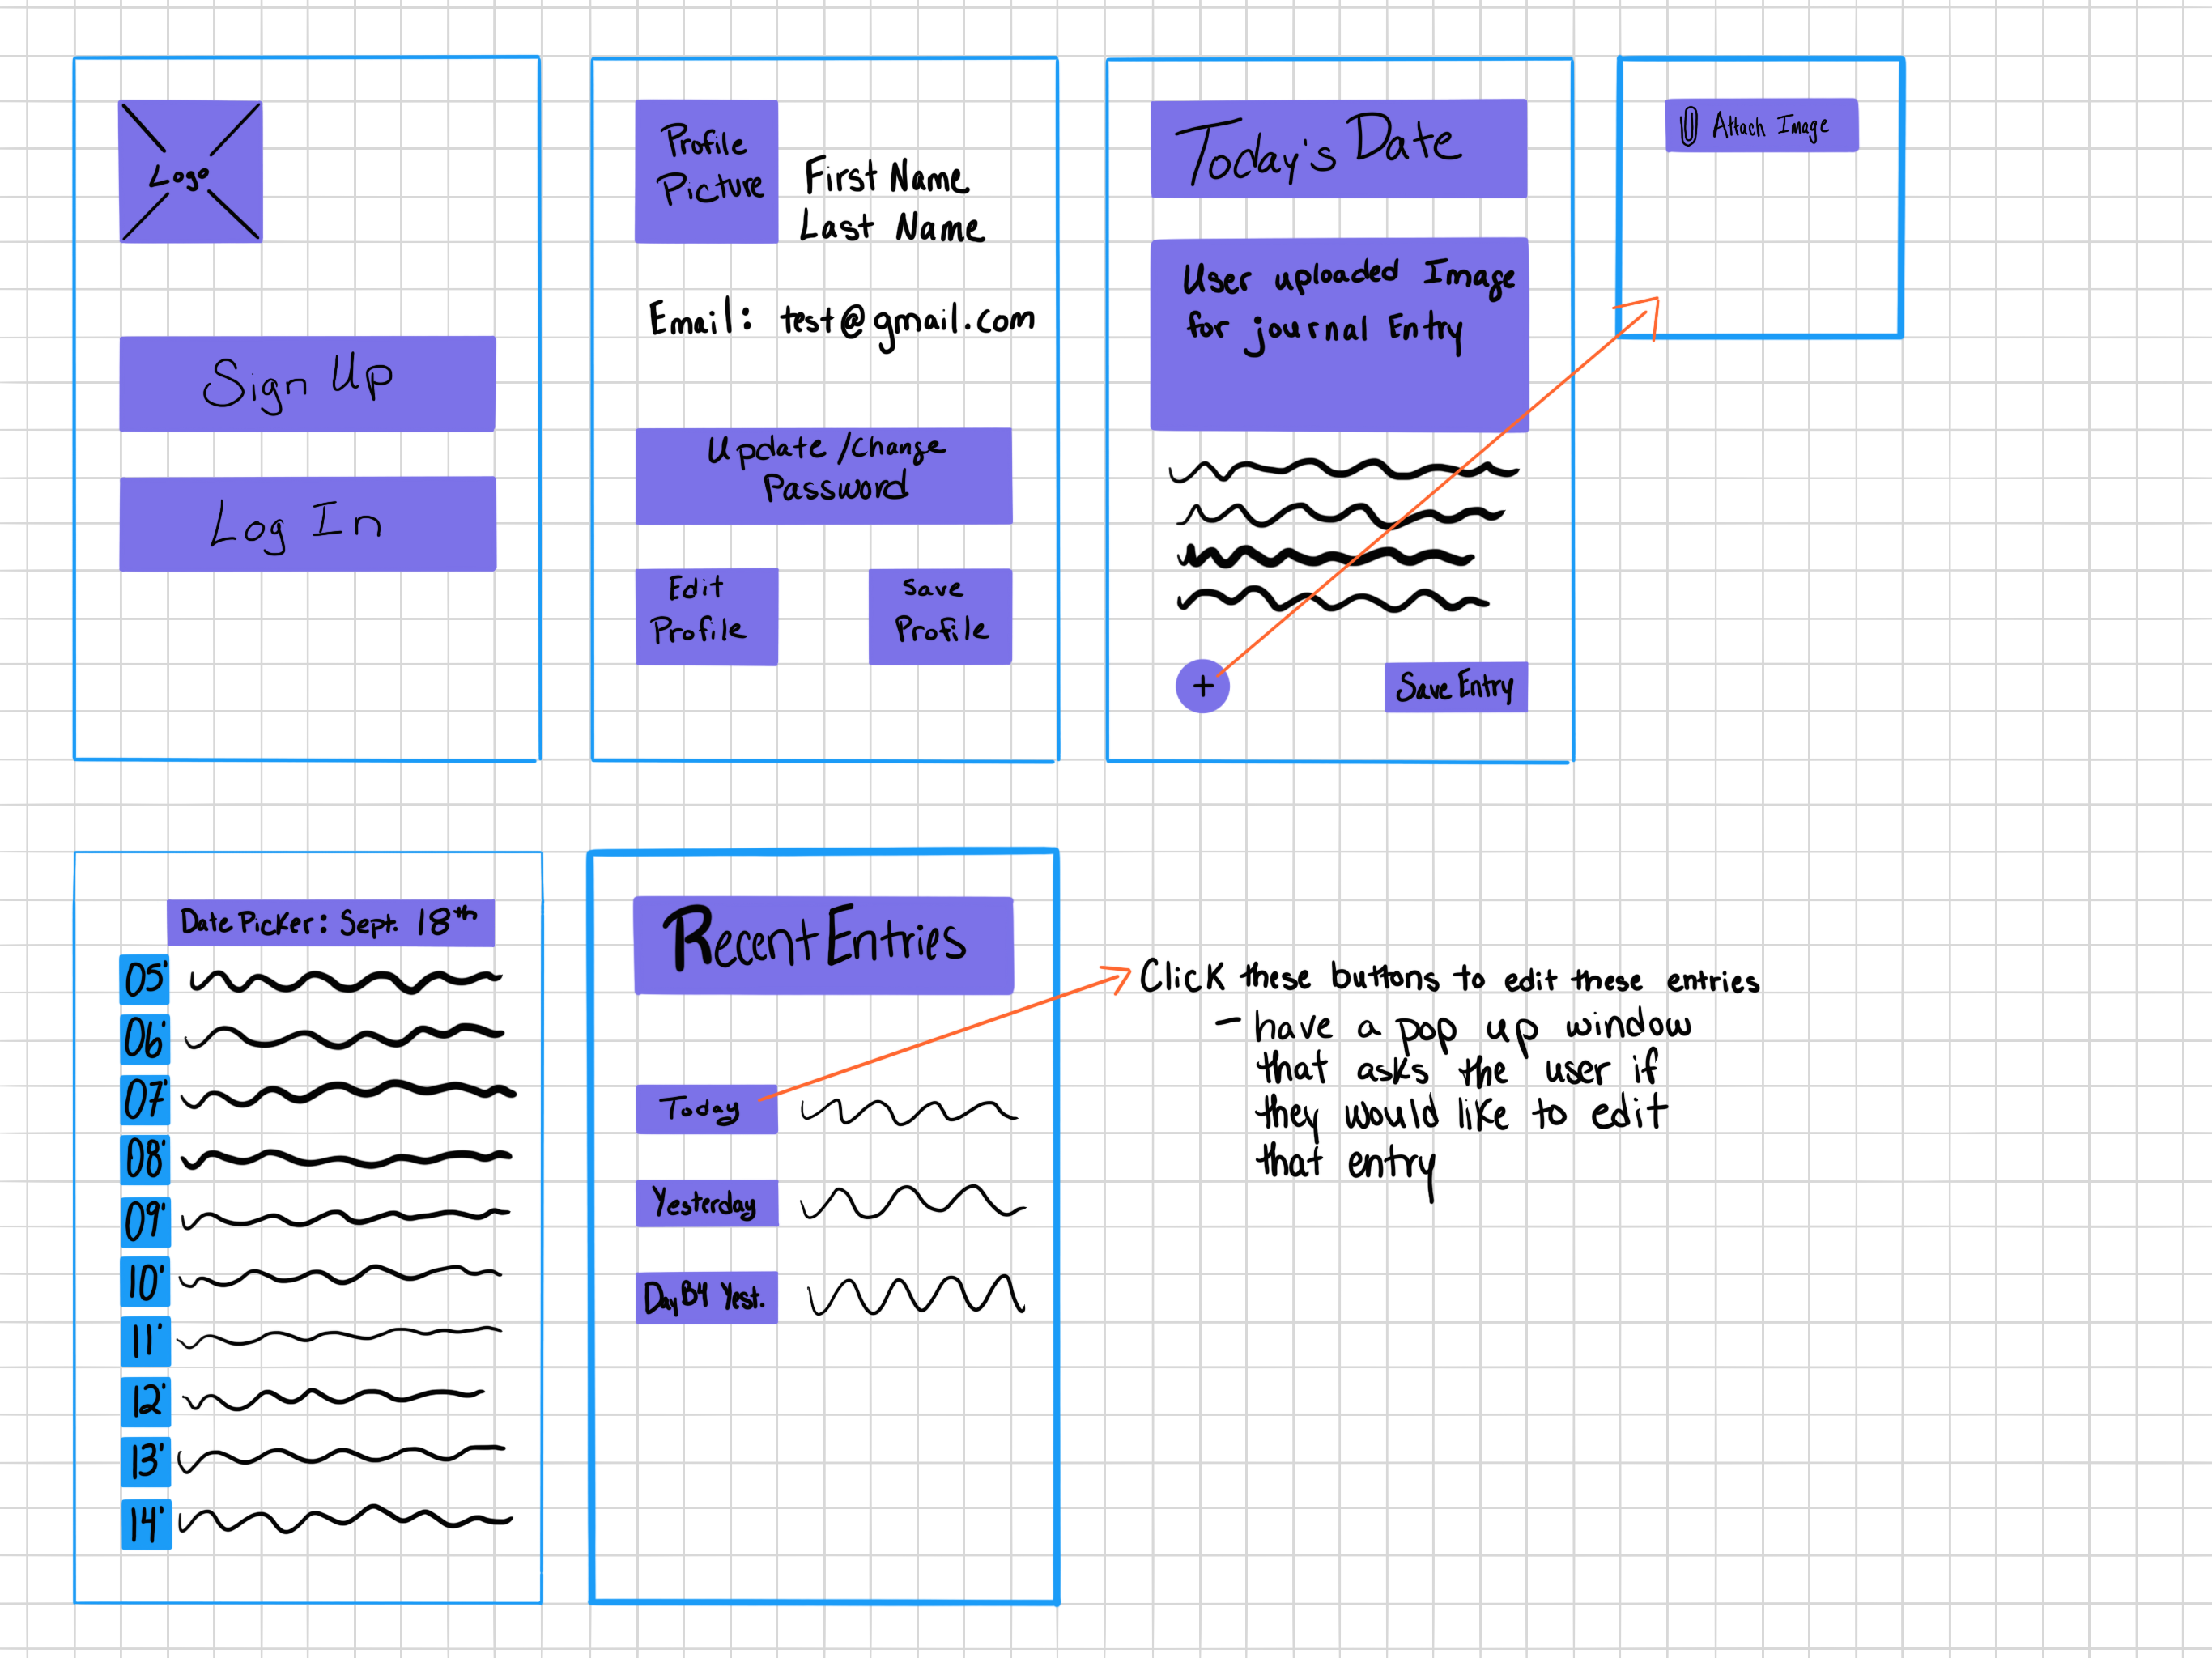 Logo
Sign Up
Log In
Profile
Picture
First Name
Last Name
Email: test@gmail.com
Update/Change
Password
Edit
Profile
Save
Profile
Today's Date
User uploaded Image
for journal Entry
+
Save Entry
Attach Image
Date Picker: Sept. 18th
05'
06'
07'
08'
09'
10'
11'
12'
13'
14'
Recent Entries
Today
Yesterday
Day B4 Yest.
Click these buttons to edit these entries
- have a pop up window
that asks the user if
they would like to edit
that entry